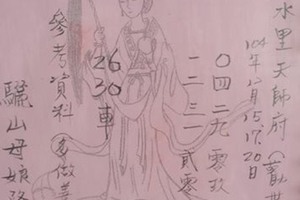 水里天師府(觀世
104年12月15.17.20日
〇四二九 零玖
一二三一 貳零
2630車
參考資料
驪山母娘